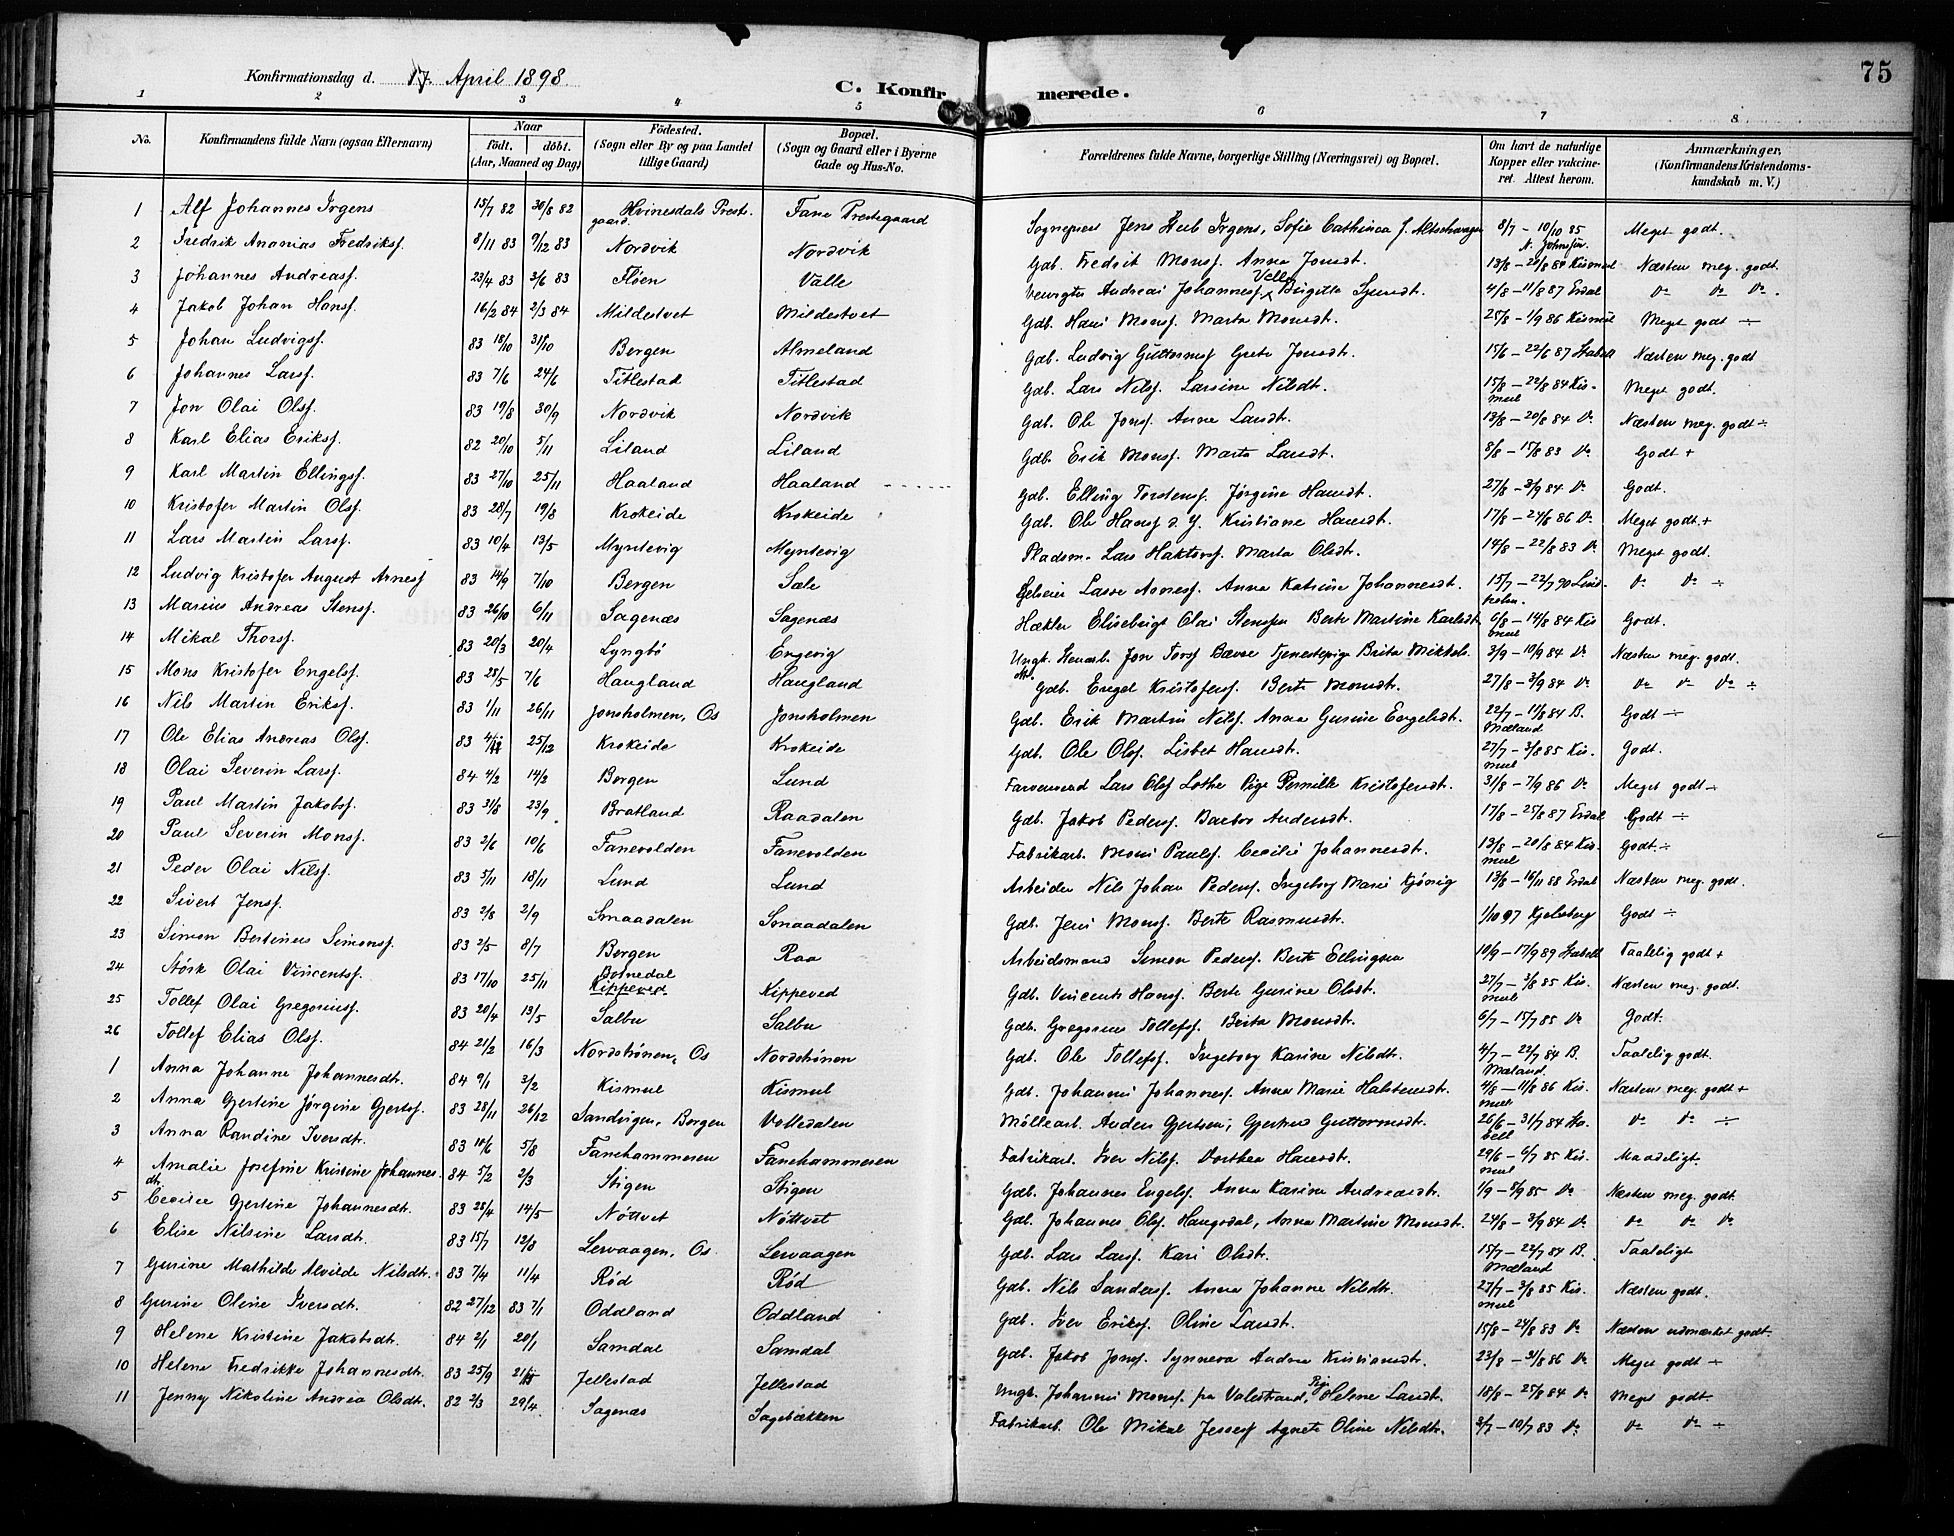 75
Konfirmationsdag d. 17. April 1898.
C. Konfirmerede.
1 2 3 4 5 6 7 8
No. Konfirmandens fulde Navn (ogsaa Efternavn) Naar födt. döbt. (Aar, Maaned og Dag) Födested. (Sogn eller By og paa Landet tillige Gaard) Bopæl. (Sogn og Gaard eller i Byerne Gade og Hus-No. Forældrenes fulde Navne, borgerlige Stilling (Næringsvei) og Bopæl. Om havt de naturlige Kopper eller vakcineret. Attest herom. Anmærkninger, (Konfirmandens Kristendomskundskab m. V.)
1 Alf Johannes Irgens 15/7 82 30/8 82 Hvinesdals Prestgaard. Fane Prestegaard Sogneprest Jens Irgens, Sofie Cathinca f. 8/7 - 10/10 85 Meget godt.
2 Fredrik Ananias Fredriksf. 8/11 83 9/12 83 Nordvik Nordvik Gdb. Fredrik Monsf. Anna Jonsdt. 13/8 - 20/8 84 Kismul Næsten meg. godt.
3 Johannes Andreasf. 23/4 83 3/6 83 Fløen Valle Andreas Johannesf. Valle Birgitte Sjursdt. 4/8 - 11/8 87 Erdal Do Do Do.
4 Jakob Johan Hansf. 16/2 84 2/3 84 Mildestvet Mildestvet Gdb. Hans Monsf. Marta Monsdt. 25/8 - 1/9 86 Kismul Meget godt ÷
5 Johan Ludvigsf. 83 18/10 31/10 Bergen Almeland Gdb. Ludvig Guttormsf Grete Jonsdt. 15/6 - 22/6 87 Næsten meg. godt
6 Johannes Larsf. 83 7/6 24/6 Titlestad Titlestad Gdb. Lars Nilsf. Larsine Nilsdt. 15/8 - 22/8 84 Kismul Meget godt.
7 Jon Olai Olsf. 83 19/8 30/9 Nordvik Nordvik Gdb. Ole Jonsf. Anna Larsdt. 13/8 - 20/8 84 Do Næsten meg. godt ÷
8 Karl Elias Eriksf. 82 20/10 5/11 Liland Liland Gdb. Erik Monsf. Marta Larsdt. 8/8 - 15/8 83 Do Godt +
9 Karl Martin Ellingsf. 83 27/10 25/11 Haaland Haaland Gdb. Elling Torstensf. Jørgine Hansdt. 27/8 - 3/9 84 Do Godt.
10 Kristofer Martin Olsf. 83 28/7 19/8 Krokeide Krokeide Gdb. Ole Hansf d. y. Kristiane Hansdt. 17/8 - 24/8 86 Do Meget godt.+
11 Lars Martin Larsf. 83 10/4 13/5 Myntevig Myntevig Pladsm. Lars Haktorsf. Marta Olsdt. 14/8 - 22/8 83 Do Meget godt.
12 Ludvig Kristofer August Arnesf 83 14/9 7/10 Bergen Sæle Lasse Arnesf. Anna Katrine Johannesdt. 15/7 - 22/7 90 Do Do ÷
13 Marius Andreas Stensf. 83 26/10 6/11 Sagenæs Sagenæs Hækler Elisebrigt Olai Stensen Berte Martine Karlsdt 6/8 - 14/8 84 Kismul Godt.
14 Mikal Thorsf. 83 20/3 20/4 Lyngbö Engevig Ungk. Jon Torsf Tjenestepige Brita Mikkels. 3/9 - 10/9 84 Do Næsten meg. godt.
15 Mons Kristofer Engelsf. 83 25/5 7/6 Haugland Haugland Gdb. Engel Kristofersf. Berte Monsdt. 27/8 - 3/9 84 Do Do Do Do ÷
16 Nils Martin Eriksf. 83 1/11 26/11 Jonsholmen, Os Jonsholmen Gdb. Erik Martin Nilsf. Anna Gurine Engelsdt. 22/7 - 11/8 84 B. Mæland Godt ÷
17 Ole Elias Andreas Olsf. 83 4/11 25/12 Krokeide Krokeide Gdb. Ole Olsf. Lisbet Hansdt. 27/7 - 3/8 85 Kismul Godt.
18 Olai Severin Larsf. 84 4/2 14/2 Bergen Lund Lars Olsf Lothe Pige Pernille Kristofersdt. 31/8 - 7/9 86 Do Meget godt ÷
19 Paul Martin Jakobsf. 83 31/8 23/9 Bratland Raadalen Gdb. Jakob Pedersf. Barbro Andersdt. 17/8 - 25/8 87 Erdal Godt ÷
20 Paul Severin Monsf. 83 2/6 10/6 Fanevolden Fanevolden Fabrikarb. Mons Paulsf. Cecilie Johannesdt. 13/8 - 20/8 84 Kismul Godt ÷
21 Peder Olai Nilsf. 83 5/11 18/11 Lund Lund Arbeider Nils Johan Pedersf. Ingeborg Marie Kjörvig 13/8 - 16/11 88 Erdal Næsten meg. godt.
22 Sivert Jensf. 83 2/8 2/9 Smaadalen Smaadalen Gdb. Jens Monsf. Berte Rasmusdt. 1/10 97 Kjelsberg Godt ÷
23 Simon Bertinus Simonsf. 83 2/5 8/7 Bergen Raa Arbeidsmand Simon Pedersf. Berte Ellingsen 10/9 - 17/9 89 Taalelig godt +
24 Størk Olai Vincentsf. 83 17/10 25/11 Kippeved Kippeved Gdb. Vincents Hansf. Berte Gurine Olsdt. 27/7 - 3/8 85 Kismul Næsten meg. godt.
25 Tollef Olai Gregoriusf. 83 20/4 13/5 Salbu Salbu Gdb. Gregorius Tollefsf. Brita Monsdt. 6/7 - 15/7 85 Do Godt.
26 Tollef Elias Olsf. 84 21/2 16/3 Nordstrønen, Os Nordstrønen Gdb. Ole Tollefsf. Ingeborg Karine Nilsdt. 4/7 - 22/7 84 B. Mæland. Taalelig godt.
1 Anna Johanne Johannesdt. 84 9/1 3/2 Kismul Kismul Gdb. Johannes Johannesf. Anna Marie Halstensdt. 4/8 - 11/8 86 Kismul Næsten meg. godt +
2 Anna Gjertine Jörgine Gjertsf. 83 28/11 26/12 Sandvigen, Bergen Volledalen Möllearb. Anders Gjertsen, Gjertrud Guttormsdt. 26/6 - 31/7 84 Do Do ÷
3 Anna Randine Iversdt. 83 10/6 5/8 Fanehammeren Fanehammeren Fabrikarb. Iver Nilsf. Dorthea Hansdt. 29/6 - 6/7 85 Kismul Maadeligt.
4 Amalie Josefine Kristine Johannesdt. 84 5/2 2/3 Stigen Stigen Gdb. Johannes Engelsf. Anna Karine Andreasdt. 1/9 - 8/9 85 Do Næsten meg. godt
5 Cecilie Gjertine Johannesdt. 83 28/4 14/5 Nöttvet Nöttvet Gdb. Johannes Olsf. Haugsdal, Anna Martine Monsdt. 24/8 - 3/9 84 Do Do Do Do
6 Elise Nilsine Larsdt. 83 15/7 12/8 Lervaagen, Os. Lervaagen Gdb. Lars Larsf. Kari Olsdt. 15/7 - 22/7 84 B. Mæland Taaleligt
7 Gurine Mathilde Alvilde Nilsdt. 83 7/4 11/4 Rød Rød Gdb. Nils Sandersf. Anna Johanne Nilsdt. 27/7 - 3/8 85 Kismul Næsten godt.
8 Gurine Oline Iversdt. 82 27/12 83 7/1 Oddland Oddland Gdb. Iver Eriksf. Oline Larsdt. 15/8 - 24/8 83 Do Næsten udmærket godt
9 Helene Kristine Jakobsdt. 84 2/1 20/1 Samdal Samdal Gdb. Jakob Jonsf. Synneva Andrea Kristiansdt. 23/8 - 31/8 86 Do Meget godt ÷
10 Helene Fredrikke Johannesdt. 83 25/9 Jellestad Jellestad Ungk. Johannes Monsf. fra Valestrand, Pige Helene Larsdt. 18/8 - 25/8 84 Do Meget godt
11 Jenny Nikoline Andrea Olsdt. 82 2/3 29/4 Sagenæs Sagebækken Fabrikarb. Ole Mikal Jessesf Agnete Oline Nilsdt. 3/7 - 10/7 83 Do Do Do ÷